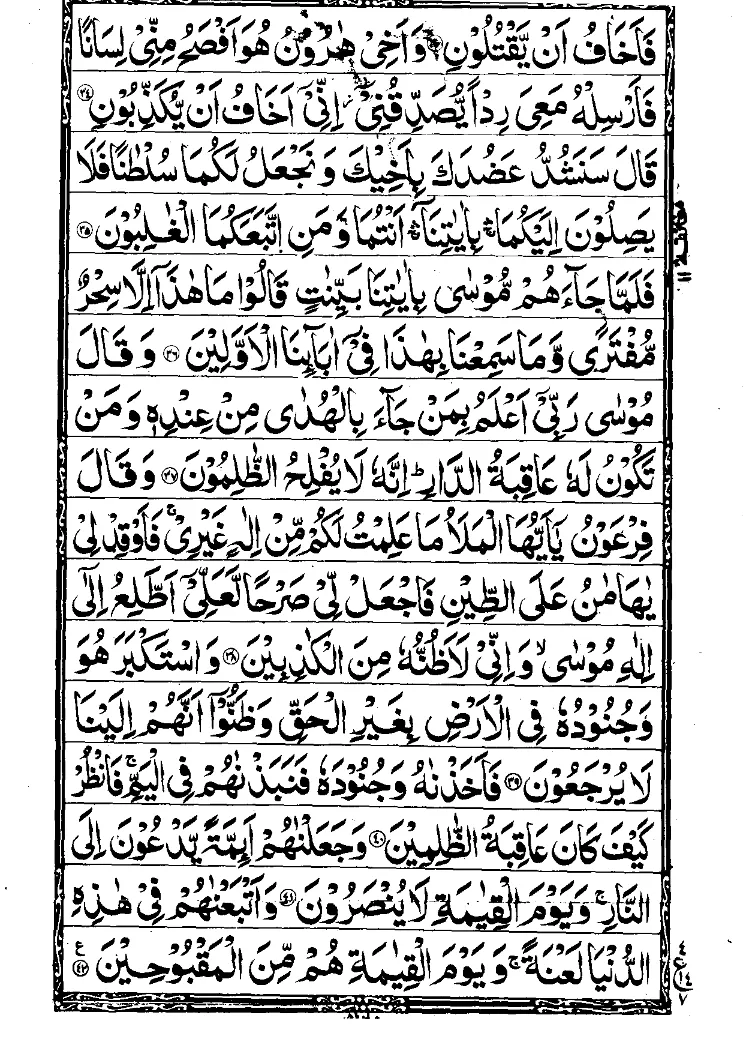 فَاَخَافُ اَنْ يَّقْتُلُوْنِ ﴿۳۳﴾ وَاَخِىْ هٰرُوْنُ هُوَ اَفْصَحُ مِنِّىْ لِسَانًا
فَاَرْسِلْهُ مَعِىَ رِدْاً يُّصَدِّقُنِىْٓ اِنِّىْٓ اَخَافُ اَنْ يُّكَذِّبُوْنِ ﴿۳۴﴾
قَالَ سَنَشُدُّ عَضُدَكَ بِاَخِيْكَ وَنَجْعَلُ لَكُمَا سُلْطٰنًا فَلَا
يَصِلُوْنَ اِلَيْكُمَا بِاٰيٰتِنَآ اَنْتُمَا وَمَنِ اتَّبَعَكُمَا الْغٰلِبُوْنَ ﴿۳۵﴾
فَلَمَّا جَآءَهُمْ مُّوْسٰى بِاٰيٰتِنَا بَيِّنٰتٍ قَالُوْا مَا هٰذَآ اِلَّا سِحْرٌ
مُّفْتَرًى وَّمَا سَمِعْنَا بِهٰذَا فِىْٓ اٰبَآئِنَا الْاَوَّلِيْنَ ﴿۳۶﴾ وَقَالَ
مُوْسٰى رَبِّىْٓ اَعْلَمُ بِمَنْ جَآءَ بِالْهُدٰى مِنْ عِنْدِهٖ وَمَنْ
تَكُوْنُ لَهٗ عَاقِبَةُ الدَّارِ ؕ اِنَّهٗ لَا يُفْلِحُ الظّٰلِمُوْنَ ﴿۳۷﴾ وَقَالَ
فِرْعَوْنُ يٰٓاَيُّهَا الْمَلَاُ مَا عَلِمْتُ لَكُمْ مِّنْ اِلٰهٍ غَيْرِىْ ۚ فَاَوْقِدْ لِىْ
يٰهَامٰنُ عَلَى الطِّيْنِ فَاجْعَلْ لِّىْ صَرْحًا لَّعَلِّىْٓ اَطَّلِعُ اِلٰٓى
اِلٰهِ مُوْسٰى ۙ وَاِنِّىْ لَاَظُنُّهٗ مِنَ الْكٰذِبِيْنَ ﴿۳۸﴾ وَاسْتَكْبَرَ هُوَ
وَجُنُوْدُهٗ فِى الْاَرْضِ بِغَيْرِ الْحَقِّ وَظَنُّوْٓا اَنَّهُمْ اِلَيْنَا
لَا يُرْجَعُوْنَ ﴿۳۹﴾ فَاَخَذْنٰهُ وَجُنُوْدَهٗ فَنَبَذْنٰهُمْ فِى الْيَمِّ ۚ فَانْظُرْ
كَيْفَ كَانَ عَاقِبَةُ الظّٰلِمِيْنَ ﴿۴۰﴾ وَجَعَلْنٰهُمْ اَئِمَّةً يَّدْعُوْنَ اِلَى
النَّارِ ۚ وَيَوْمَ الْقِيٰمَةِ لَا يُنْصَرُوْنَ ﴿۴۱﴾ وَاَتْبَعْنٰهُمْ فِىْ هٰذِهِ
الدُّنْيَا لَعْنَةً ۚ وَيَوْمَ الْقِيٰمَةِ هُمْ مِّنَ الْمَقْبُوْحِيْنَ ﴿۴۲﴾ ع